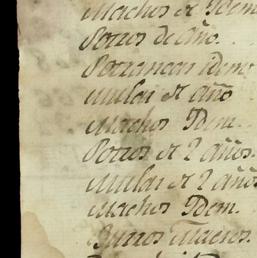 Machos de Ydem
Potros de año.
Potrancas Ydem
Mulas de año
Machos Ydem.
Potros de 2 años.
Mulas de 2 años
Machos Ydem.
Burros